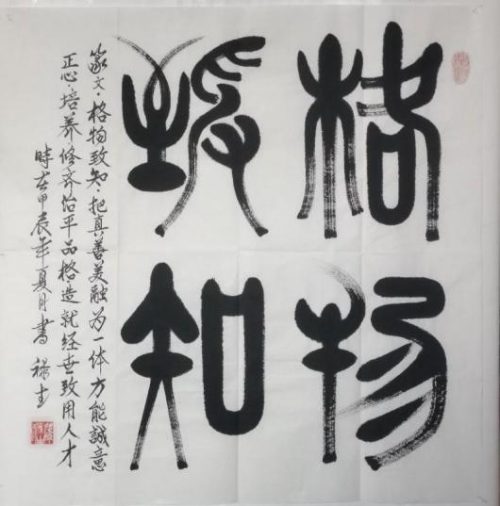 格物
致知
篆文·格物致知·把真善美融为一体方能誠意
正心·培养修齐治平品格造就经世致用人才
時在甲辰年夏月書